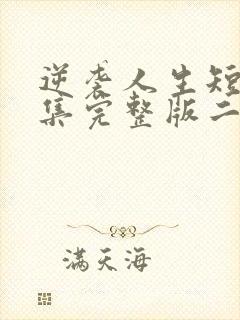 逆袭人生短
集完整版二
满天海